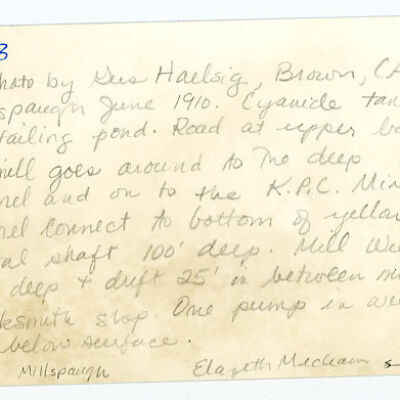 3
hoto by Gus Haelsig, Brown, CA
spaugh June 1910. Cyanide tan
tailing pond. Road at upper ba
mill goes around to The deep
nel and on to the K.P.C. Min
nel connect to bottom of yellow
tal shaft 100' deep. Mill We
deep + drift 25' in between m
ksmith shop. One pump in we
below surface.
Millspaugh Elazeth Mecham s